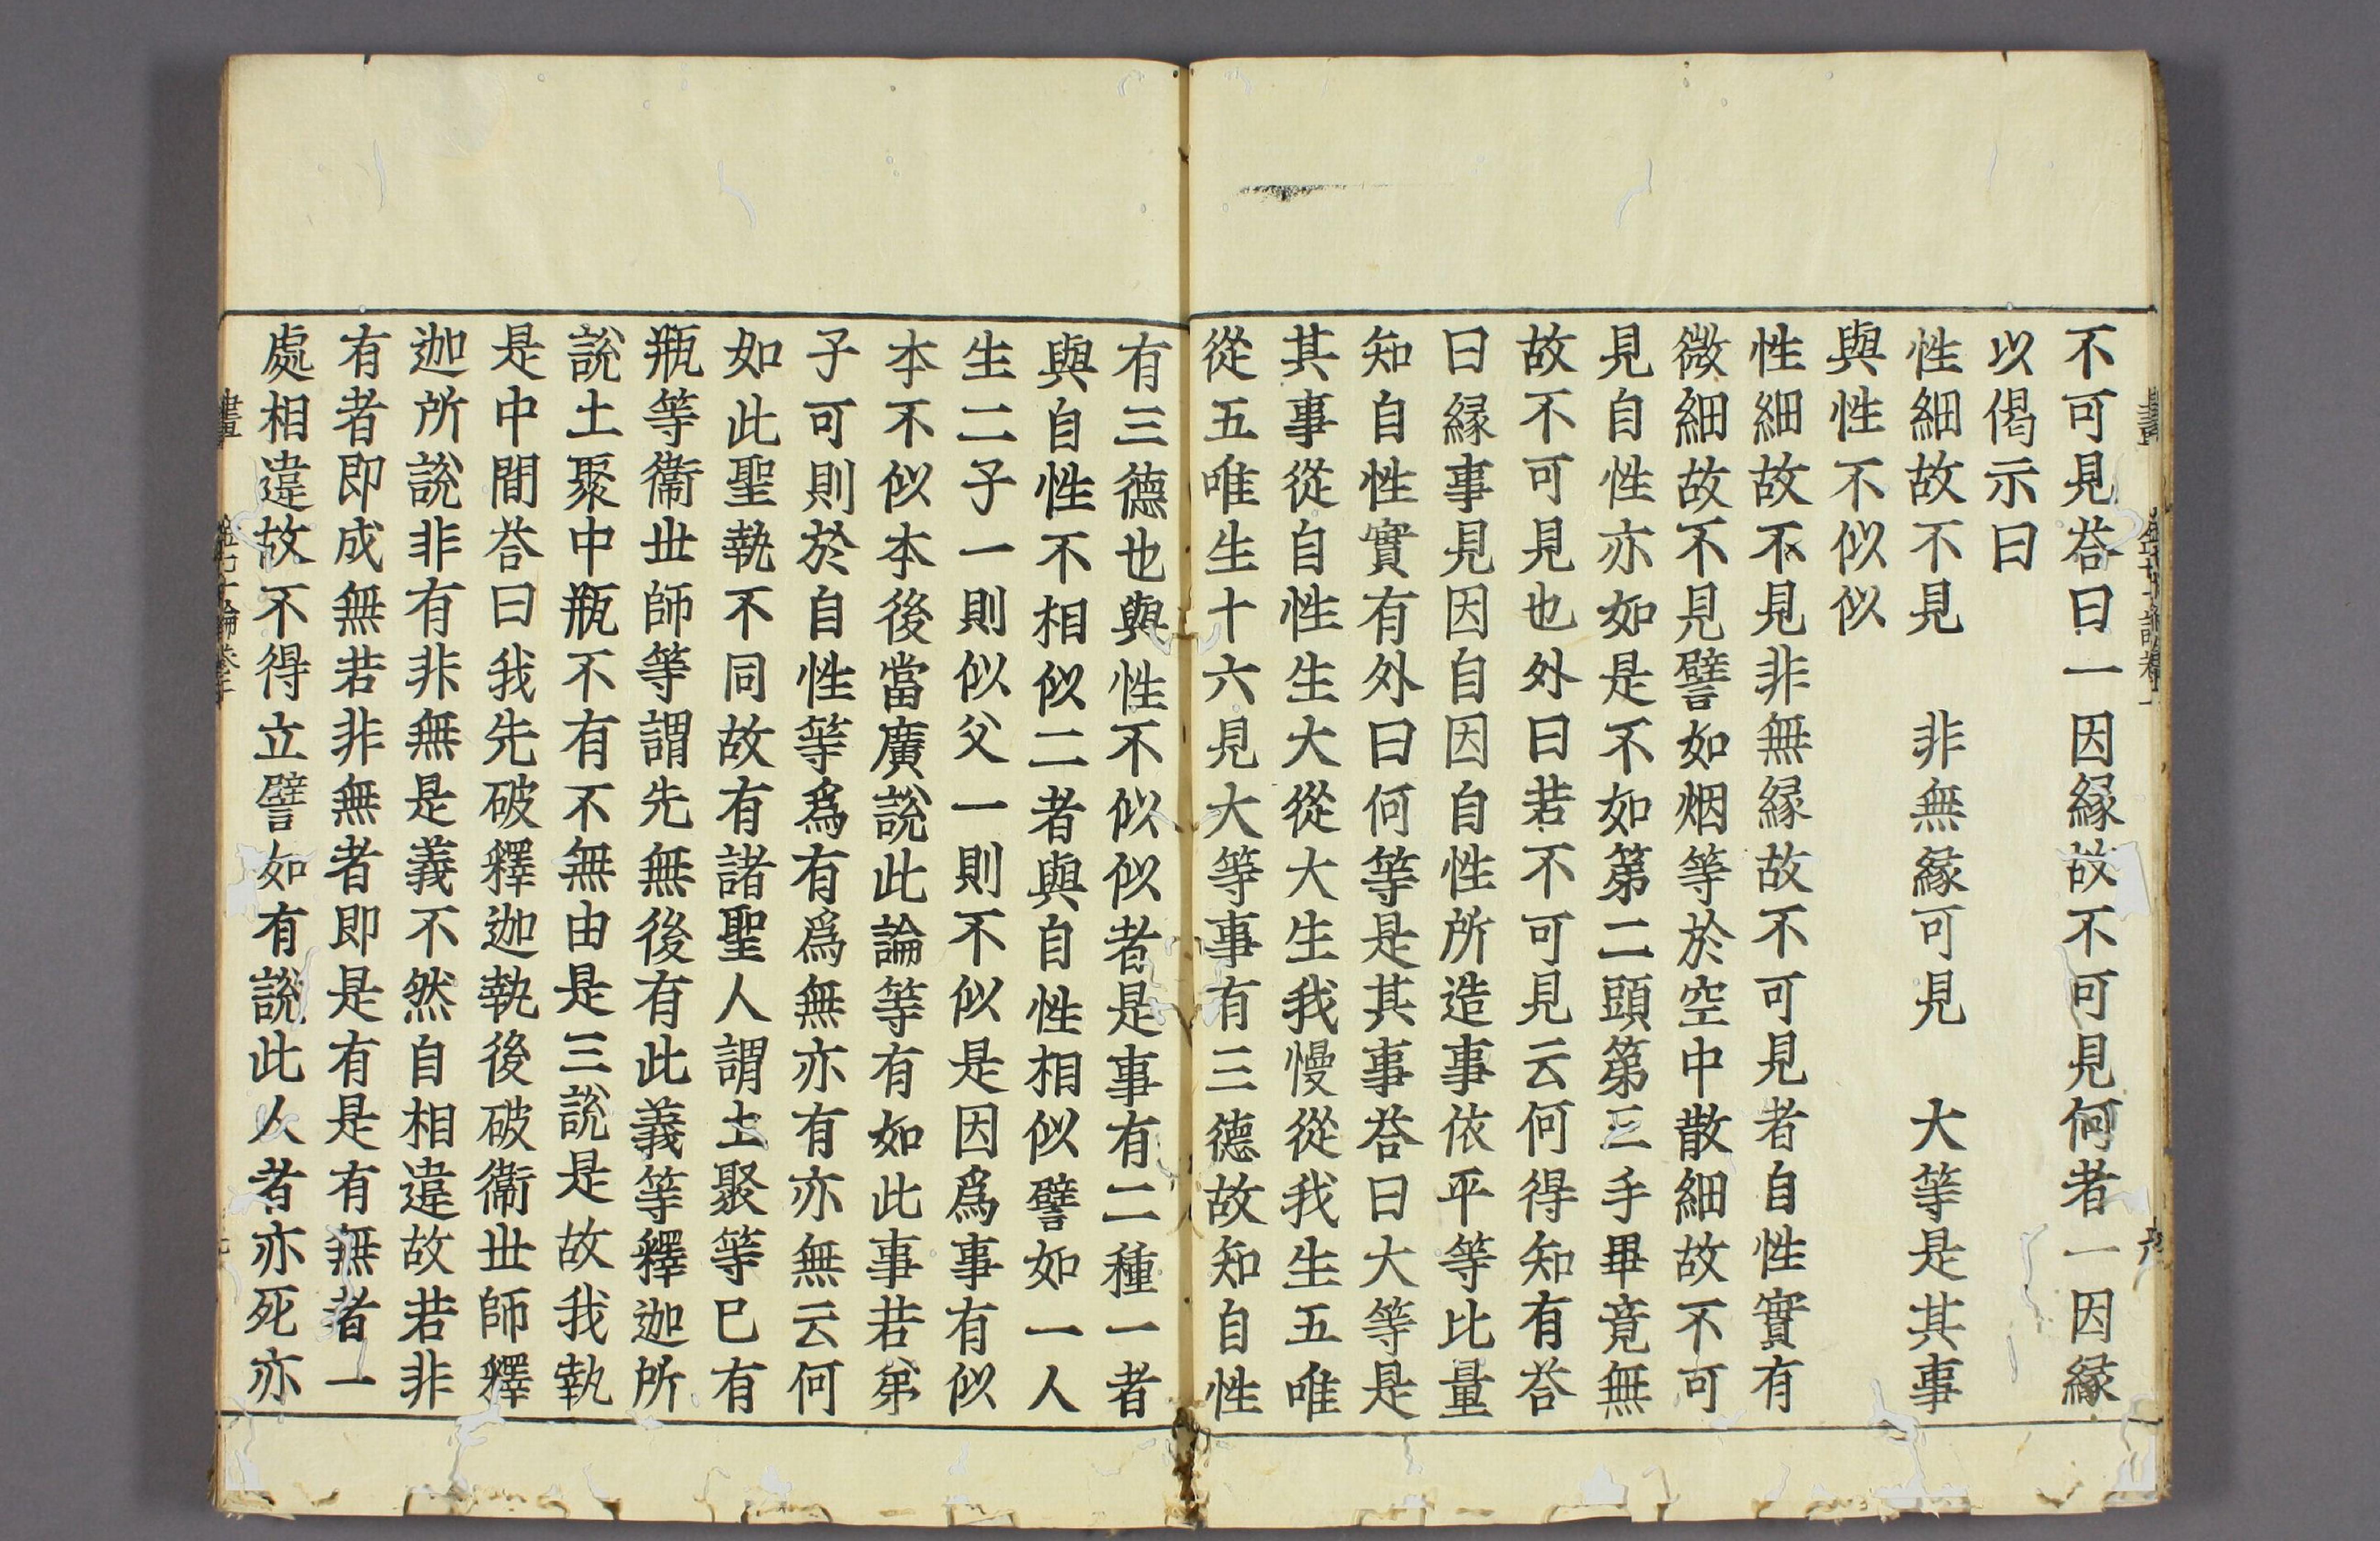 不可見荅曰一因縁故不可見何者一因縁
以偈示曰
性細故不見　非無縁可見　大等是其事
與性不似似
性細故不見非無縁故不可見者自性實有
微細故不見譬如烟等於空中散細故不可
見自性亦如是不如第二頭第三手畢竟無
故不可見也外曰若不可見云何得知有荅
曰縁事見因自因自性所造事依平等比量
知自性實有外曰何等是其事荅曰大等是
其事從自性生大從大生我慢從我生五唯
從五唯生十六見大等事有三德故知自性
有三德也與性不似似者是事有二種一者
與自性不相似二者與自性相似譬如一人
生二子一則似父一則不似是因爲事有似
本不似本後當廣說此論等有如此事若弟
子可則於自性等爲有爲無亦有亦無云何
如此聖執不同故有諸聖人謂土聚等已有
瓶等衞世師等謂先無後有此義等釋迦所
說土聚中瓶不有不無由是三說是故我執
是中間荅曰我先破釋迦執後破衞世師釋
迦所說非有非無是義不然自相違故若非
有者即成無若非無者即是有是有無者一
處相違故不得立譬如有說此人者亦死亦